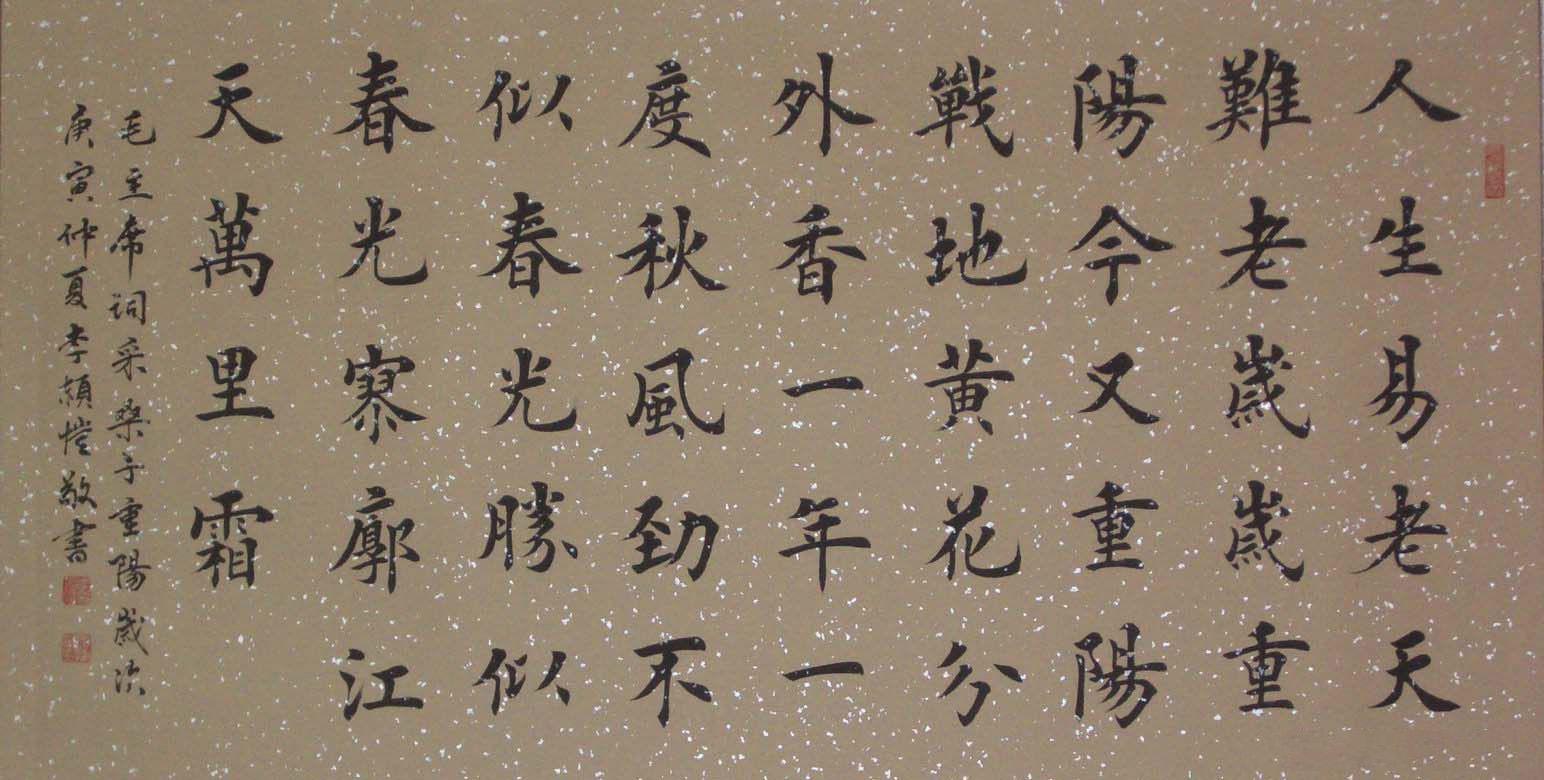 人生易老天
難老歲歲重
陽今又重陽
戰地黃花分
外香一年一
度秋風勁不
似春光勝似
春光寥廓江
天萬里霜
毛主席詞采桑子重陽歲次
庚寅仲夏李頴愷敬書